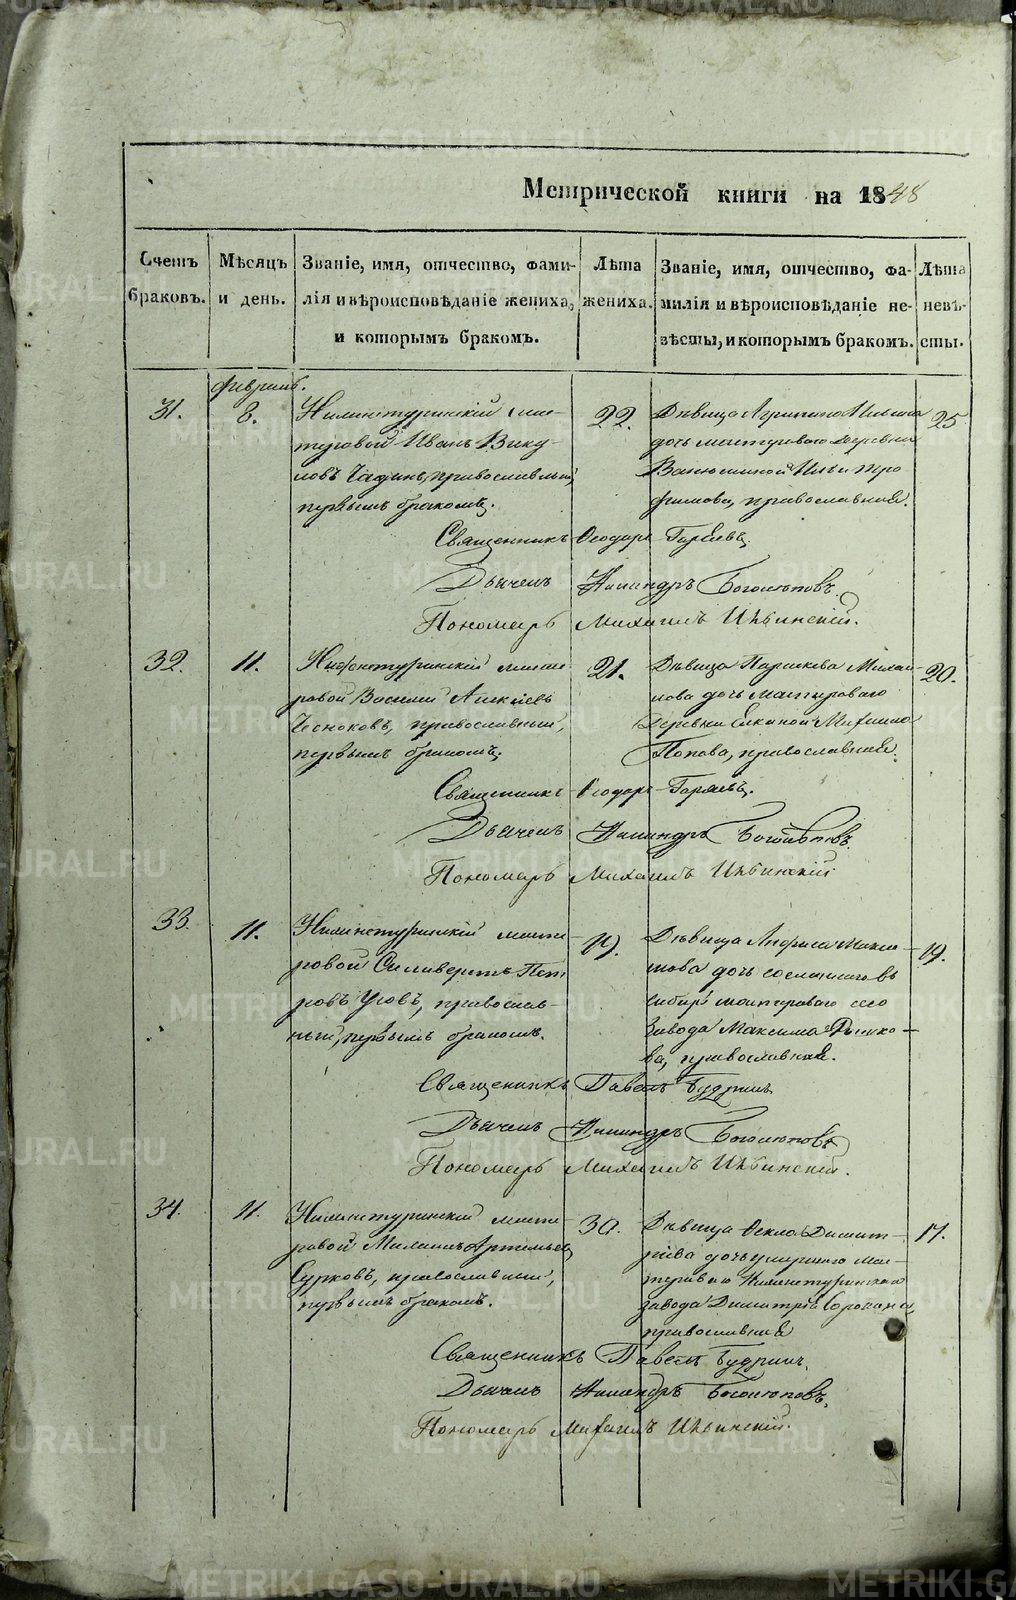 Метрической книги на 1848
Счетъ браковъ.
Мѣсяцъ и день.
Званіе, имя, отчество, фами-
лія и вѣроисповѣданіе жениха,
и которымъ бракомъ.
Лѣта жениха.
Званіе, имя, отчество, фа-
милія и вѣроисповѣданіе не-
вѣсты, и которымъ бракомъ.
Лѣта невѣ-
сты.
февраль.
31.
8.
Нижнетуринскій мас-
теровой Иванъ Вику-
ловъ православный,
первымъ бракомъ.
22.
Дѣвица Агрипина Ильина
дочь мастероваго деревни
Ильи Тро
фимова, православная.
25
Священникъ Ѳеодоръ
Дьячекъ Никандръ Боголюповъ
Пономарь Михаилъ Ивинскій.
32.
11.
Нижнетуринскій масте-
ровой Василій Алексѣевъ
Чесноковъ, православный,
первымъ бракомъ.
21.
Дѣвица Параскева Михаи-
лова дочь мастероваго
деревни Елкиной Михаила
Попова, православная.
20.
Священникъ Ѳеодоръ
Дьячекъ Никандръ Боголюповъ
Пономарь Михаилъ Ивинскій
33.
11.
Нижнетуринскій масте-
ровой Силиверстъ Пет
ровъ православ-
ный, первымъ бракомъ.
19.
Дѣвица Анфиса Макси-
мова дочь сосланнаго въ
Сибирь мастероваго сего
завода Максима
православная.
19.
Священникъ Павелъ Будринъ
Дьячекъ Никандръ Боголюповъ
Пономарь Михаилъ Ивинскій.
34.
11.
Нижнетуринскій масте-
ровой Артемьевъ
Сурковъ, православный,
первымъ бракомъ.
30.
Дѣвица Ѳекла Димит-
ріева дочь умершаго мас-
тероваго Нижнетуринскаго
завода Димитрія Сорокина
православная
17.
Священникъ Павелъ Будринъ.
Дьячекъ Никандръ Боголюповъ.
Пономарь Михаилъ Ивинскій.
METRIKI.GASO-URAL.RU